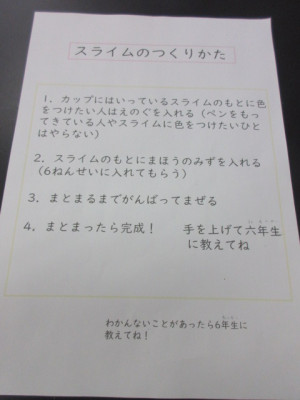 スライムのつくりかた
1、カップにはいっているスライムのもとに色
をつけたい人はえのぐを入れる（ペンをもっ
てきている人やスライムに色をつけたいひと
はやらない）
2、スライムのもとにまほうのみずを入れる
（6ねんせいに入れてもらう）
3、まとまるまでがんばってまぜる
4、まとまったら完成！　手を上げて六年生
に教えてね
わかんないことがあったら6年生に
教えてね！